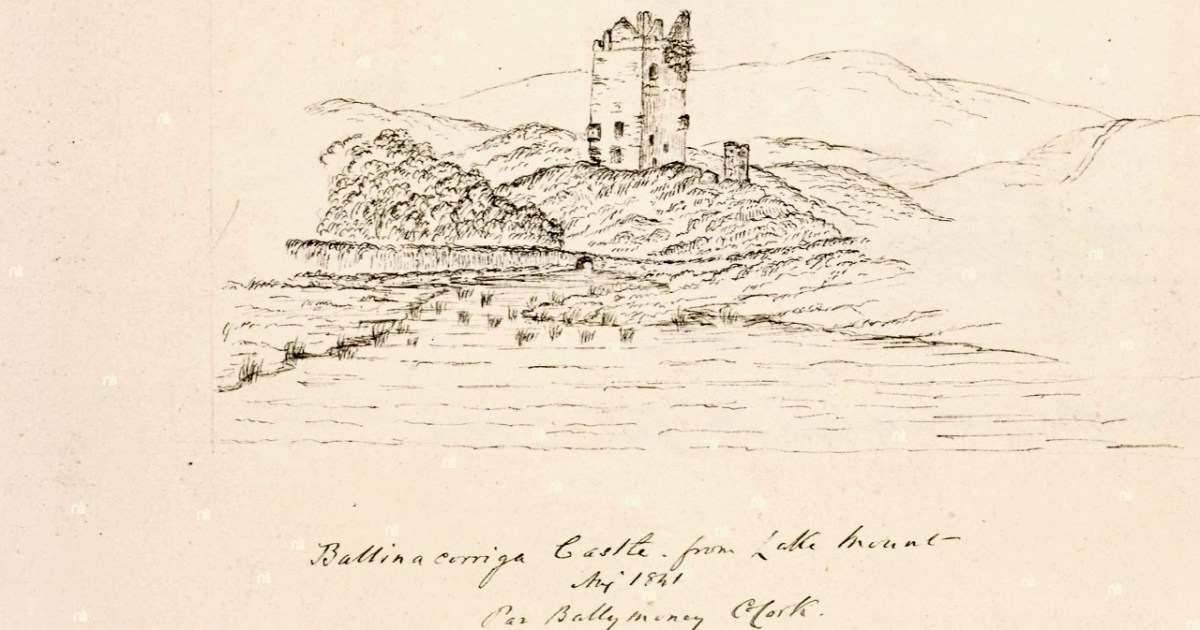 Ballinacorriga Castle. from Lake Mount
Aug 1841
Par Ballymoney Co Cork.